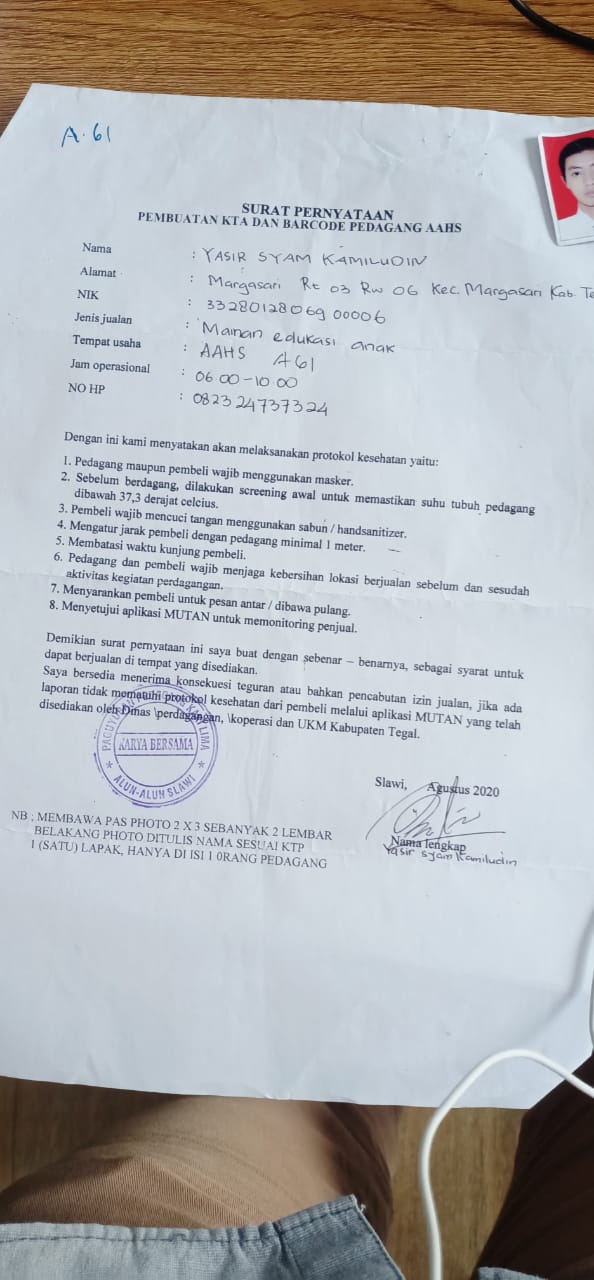 A.61
SURAT PERNYATAAN
PEMBUATAN KTA DAN BARCODE PEDAGANG AAHS
Nama : YASIR SYAM KAMILUDIN
Alamat : Margasari Rt 03 RW 06 Kec. Margasari Kab. Te
NIK : 3328012806900006
Jenis jualan : Mainan edukasi anak
Tempat usaha : AAHS A61
Jam operasional : 06.00-10.00
NO HP : 082324737324
Dengan ini kami menyatakan akan melaksanakan protokol kesehatan yaitu:
1. Pedagang maupun pembeli wajib menggunakan masker.
2. Sebelum berdagang, dilakukan screening awal untuk memastikan suhu tubuh pedagang
dibawah 37,3 derajat celcius.
3. Pembeli wajib mencuci tangan menggunakan sabun / handsanitizer.
4. Mengatur jarak pembeli dengan pedagang minimal 1 meter.
5. Membatasi waktu kunjung pembeli.
6. Pedagang dan pembeli wajib menjaga kebersihan lokasi berjualan sebelum dan sesudah
aktivitas kegiatan perdagangan.
7. Menyarankan pembeli untuk pesan antar / dibawa pulang.
8. Menyetujui aplikasi MUTAN untuk memonitoring penjual.
Demikian surat pernyataan ini saya buat dengan sebenar – benarnya, sebagai syarat untuk
dapat berjualan di tempat yang disediakan.
Saya bersedia menerima konsekuesi teguran atau bahkan pencabutan izin jualan, jika ada
laporan tidak mematuhi protokol kesehatan dari pembeli melalui aplikasi MUTAN yang telah
disediakan oleh Dinas \perdagangan, \koperasi dan UKM Kabupaten Tegal.
KARYA BERSAMA
ALUN-ALUN SLAWI
Slawi, Agustus 2020
Nama lengkap
Yasir Syam Kamiludin
NB ; MEMBAWA PAS PHOTO 2 X 3 SEBANYAK 2 LEMBAR
BELAKANG PHOTO DITULIS NAMA SESUAI KTP
1 (SATU) LAPAK, HANYA DI ISI 1 0RANG PEDAGANG